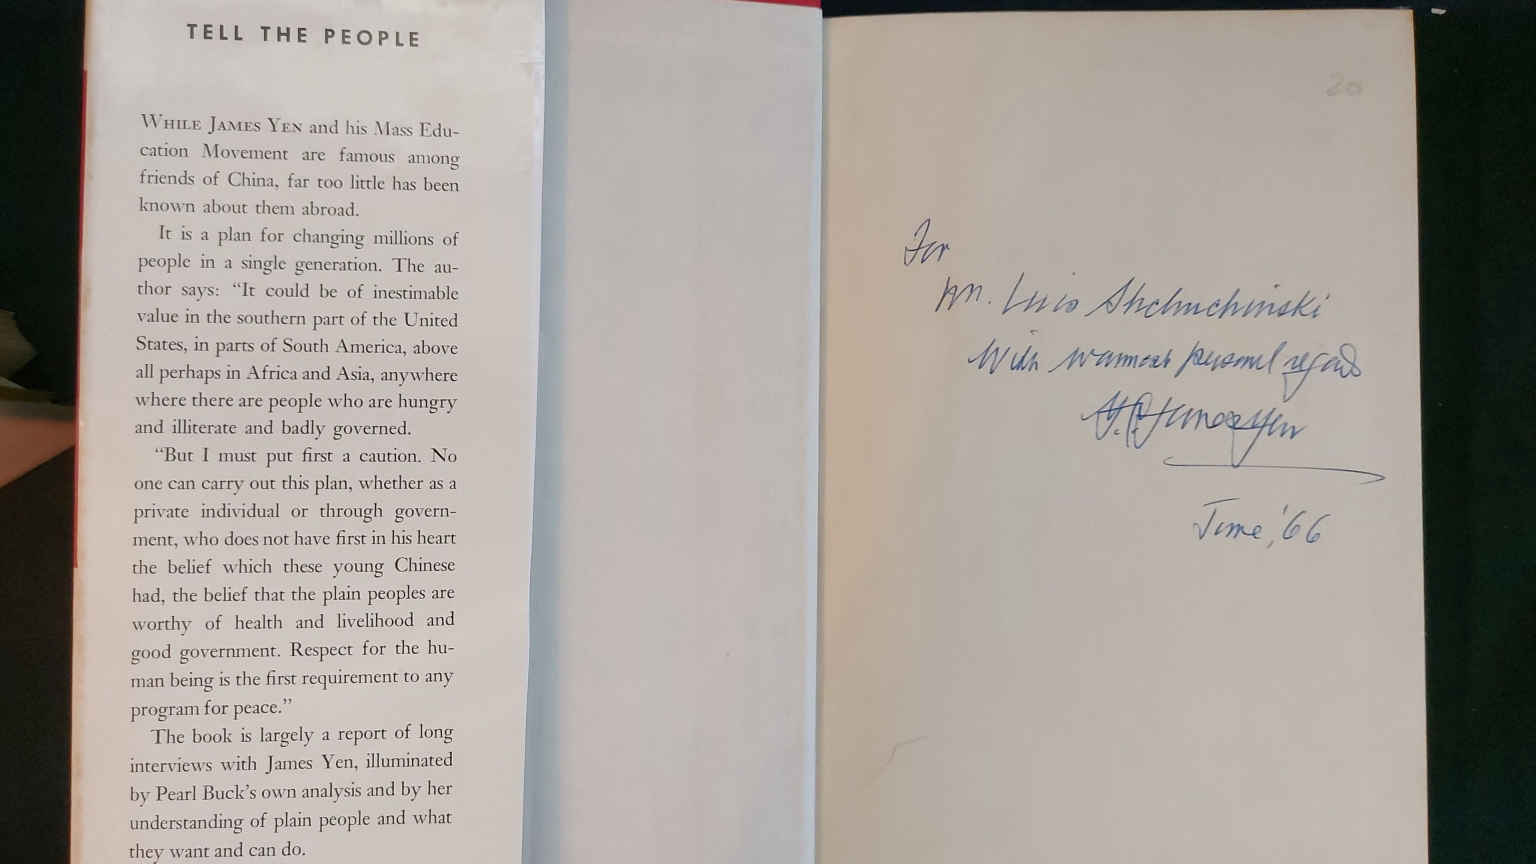 TELL THE PEOPLE
WHILE JAMES YEN and his Mass Edu-
cation Movement are famous among
friends of China, far too little has been
known about them abroad.
It is a plan for changing millions of
people in a single generation. The au-
thor says: “It could be of inestimable
value in the southern part of the United
States, in parts of South America, above
all perhaps in Africa and Asia, anywhere
where there are people who are hungry
and illiterate and badly governed.
“But I must put first a caution. No
one can carry out this plan, whether as a
private individual or through govern-
ment, who does not have first in his heart
the belief which these young Chinese
had, the belief that the plain peoples are
worthy of health and livelihood and
good government. Respect for the hu-
man being is the first requirement to any
program for peace.”
The book is largely a report of long
interviews with James Yen, illuminated
by Pearl Buck’s own analysis and by her
understanding of plain people and what
they want and can do.
20
For
Shchuchinski
With warmest personal regards
Y.C. James Yen
June, '66